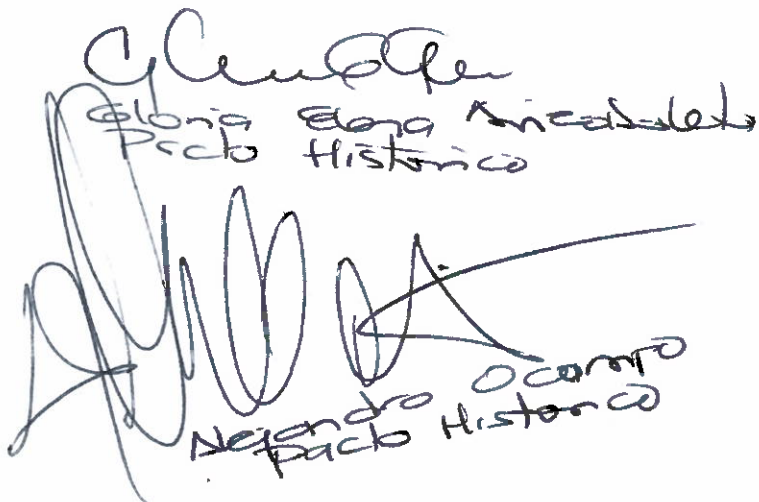 Gloria Elena Arizabaleta
Pacto Historico
Alejandro Ocampo
Pacto Historico